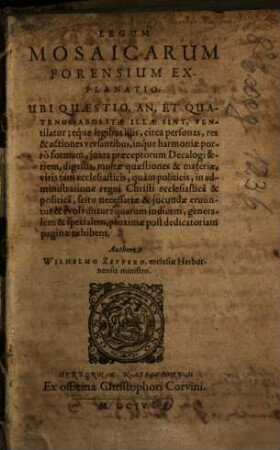 LEGUM
MOSAICARUM
FORENSIUM EX-
PLANATIO.
UBI QUÆSTIO, AN, ET QUA-
TENUS ABOLITÆ ILLÆ SINT, VEN-
tilatur; eque legibus istis, circa personas, res
& actiones versantibus, inque harmoniæ por-
rò formam, juxta præceptorum Decalogi se-
riem, digestis, multæ quæstiones & materiæ,
viris tam ecclesiasticis, quàm politicis, in ad-
ministratione regni Christi ecclesiastica &
politica, scitu necessariæ & jucundæ eruun-
tur & evolvuntur: quarum indicem, genera-
lem & specialem, proximæ post dedicatoriam
paginæ exhibent.
Authore
WILHELMO ZEPPERO, ecclesiæ Herbor-
nensis ministro.
HERBORNÆ NASSOVIORUM
Ex officina Christophori Corvini.